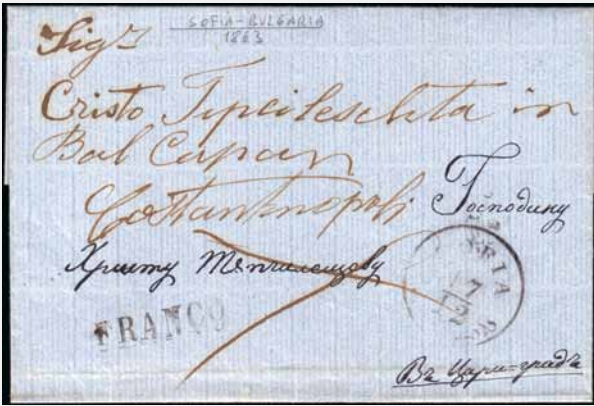 SOFIA-BULGARIA
1863
Sigr
Cristo Tepcileschta in
Bal Capan
Costantinopoli
Господину
Христу Тѫпчилещову
FRANCO
Въ Цари-градъ